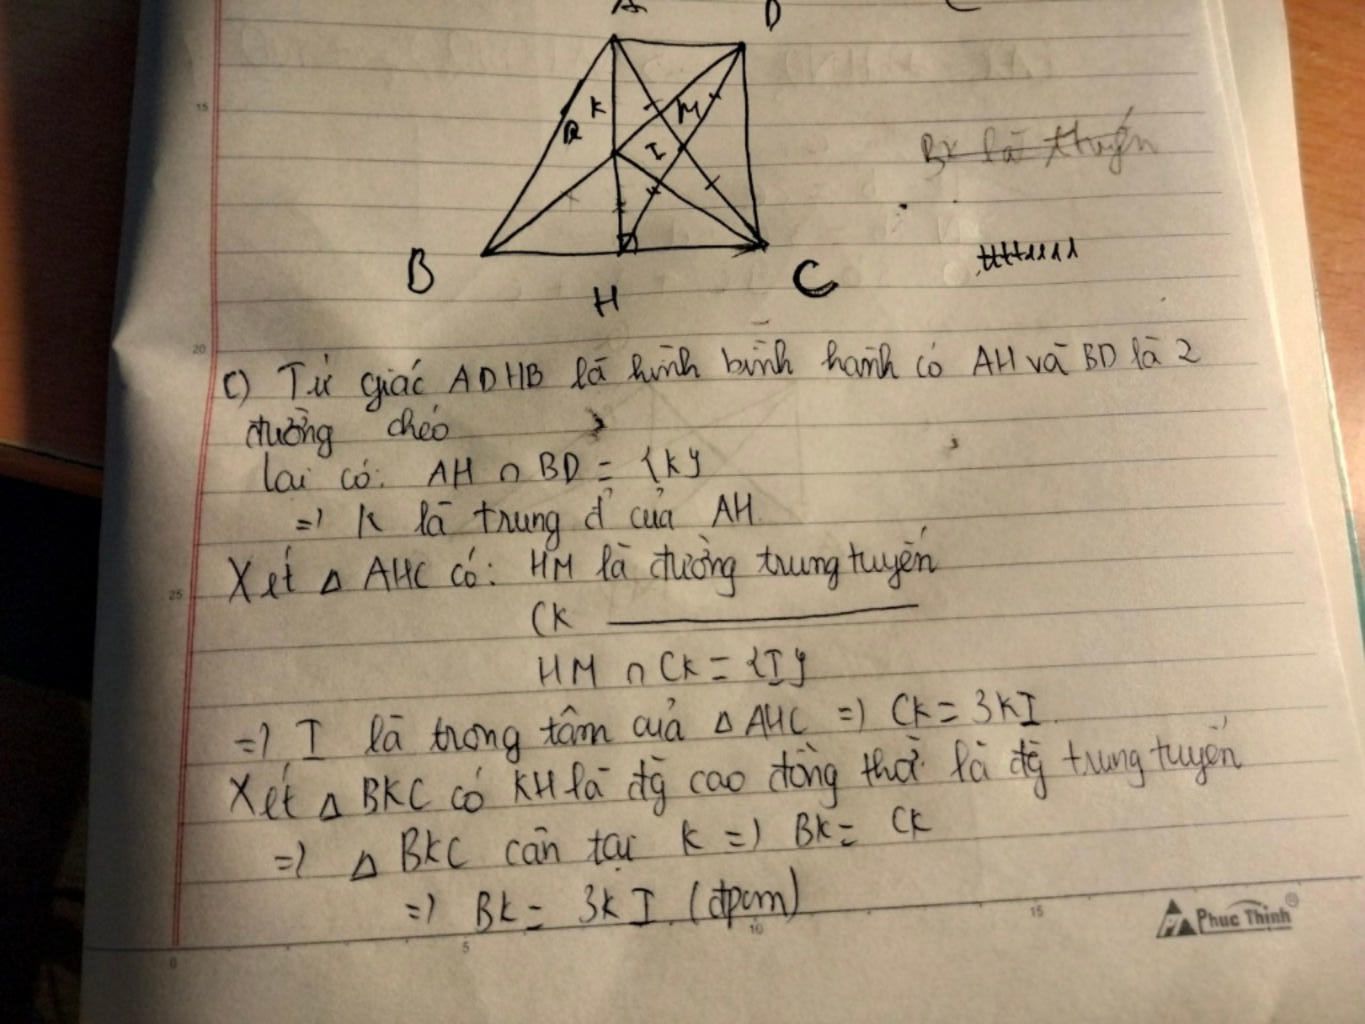 A D
15
K M
R
I
BK là trung tuyến
B
H
C
20
c) Tứ giác ADHB là hình bình hành có AH và BD là 2
đường chéo
lại có: AH ∩ BD = {K}
=) K là trung đ' của AH
Xét Δ AHC có: HM là đường trung tuyến
25
CK ————
HM ∩ CK = {I}
=) I là trọng tâm của Δ AHC =) CK = 3KI
Xét Δ BKC có KH là đg cao đồng thời là đg trung tuyến
=) Δ BKC cân tại K =) BK = CK
=) BK = 3KI (đpcm)
Phuc Thinh
0 5 10 15